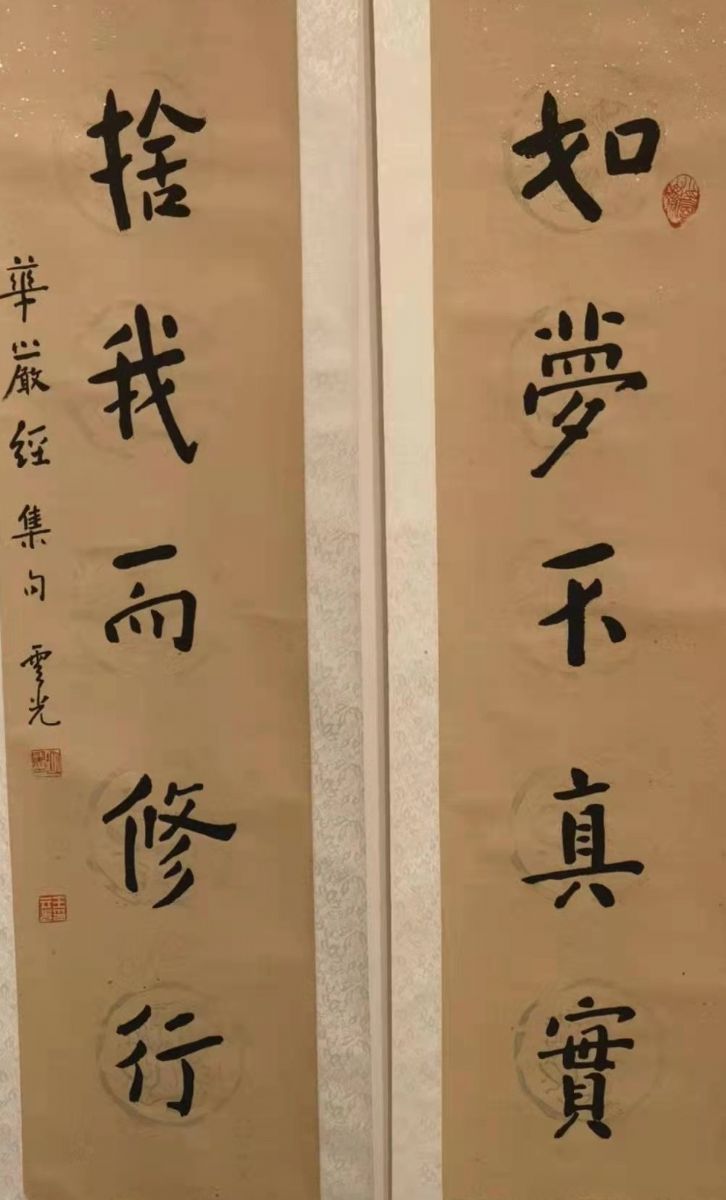 如夢不真實
捨我而修行
華嚴經集句 雲光